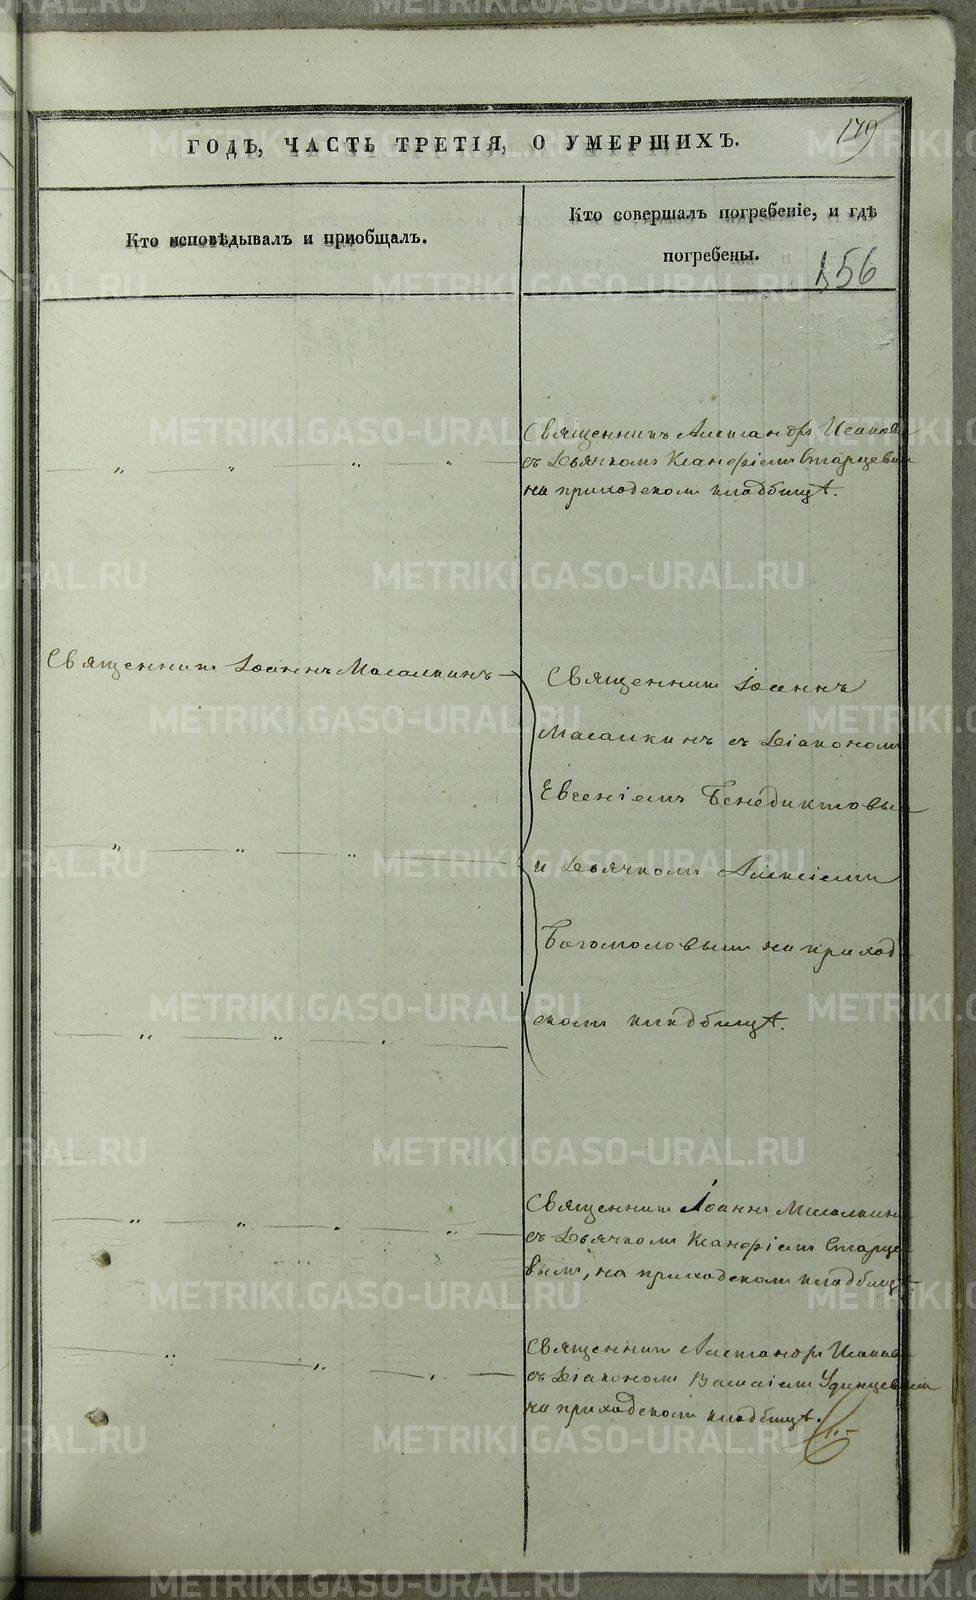 179
ГОДЪ, ЧАСТЬ ТРЕТІЯ, О УМЕРШИХЪ.
Кто исповѣдывалъ и приобщалъ.
Кто совершалъ погребеніе, и гдѣ
погребены.
156
Священникъ Александръ
съ Дьячкомъ Ксанфіемъ Старцевым
на приходскомъ кладбищѣ.
Священникъ Іоаннъ Масалкинъ
Священникъ Іоаннъ
Масалкинъ съ Діакономъ
Евгеніемъ Бенедиктовым
и Дьячкомъ Алексіемъ
Богомоловымъ на приход
скомъ кладбищѣ.
Священникъ Іоаннъ Масалкинъ
съ Дьячкомъ Ксанфіемъ Старце
вымъ, на приходскомъ кладбищѣ.
Священникъ Александръ
съ Діакономъ Удинцевым
на приходскомъ кладбищѣ.
METRIKI.GASO-URAL.RU